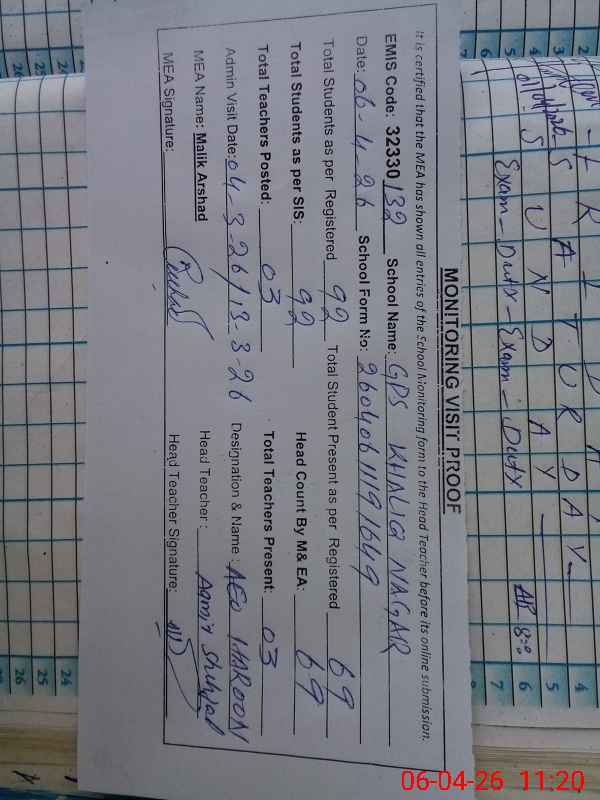 MONITORING VISIT PROOF
It is certified that the MEA has shown all entries of the School Monitoring form to the Head Teacher before its online submission.
EMIS Code: 32330132 School Name: GPS KHALIQ NAGAR
Date: 06-4-26 School Form No: 2604061191649
Total Students as per Registered 92 Total Student Present as per Registered 69
Total Students as per SIS: 92 Head Count By M& EA: 69
Total Teachers Posted: 03 Total Teachers Present: 03
Admin Visit Date: 04-3-26/13-3-26 Designation & Name: AEO HAROON
MEA Name: Malik Arshad Head Teacher: Aamir
MEA Signature: Head Teacher Signature:
FRIDAY
SATURDAY
SUNDAY
Exam-Duty-Exam-Duty
8:00
2
3
4
5
6
7
4
5
6
7
20
25
26
24
25
26
06-04-26 11:20